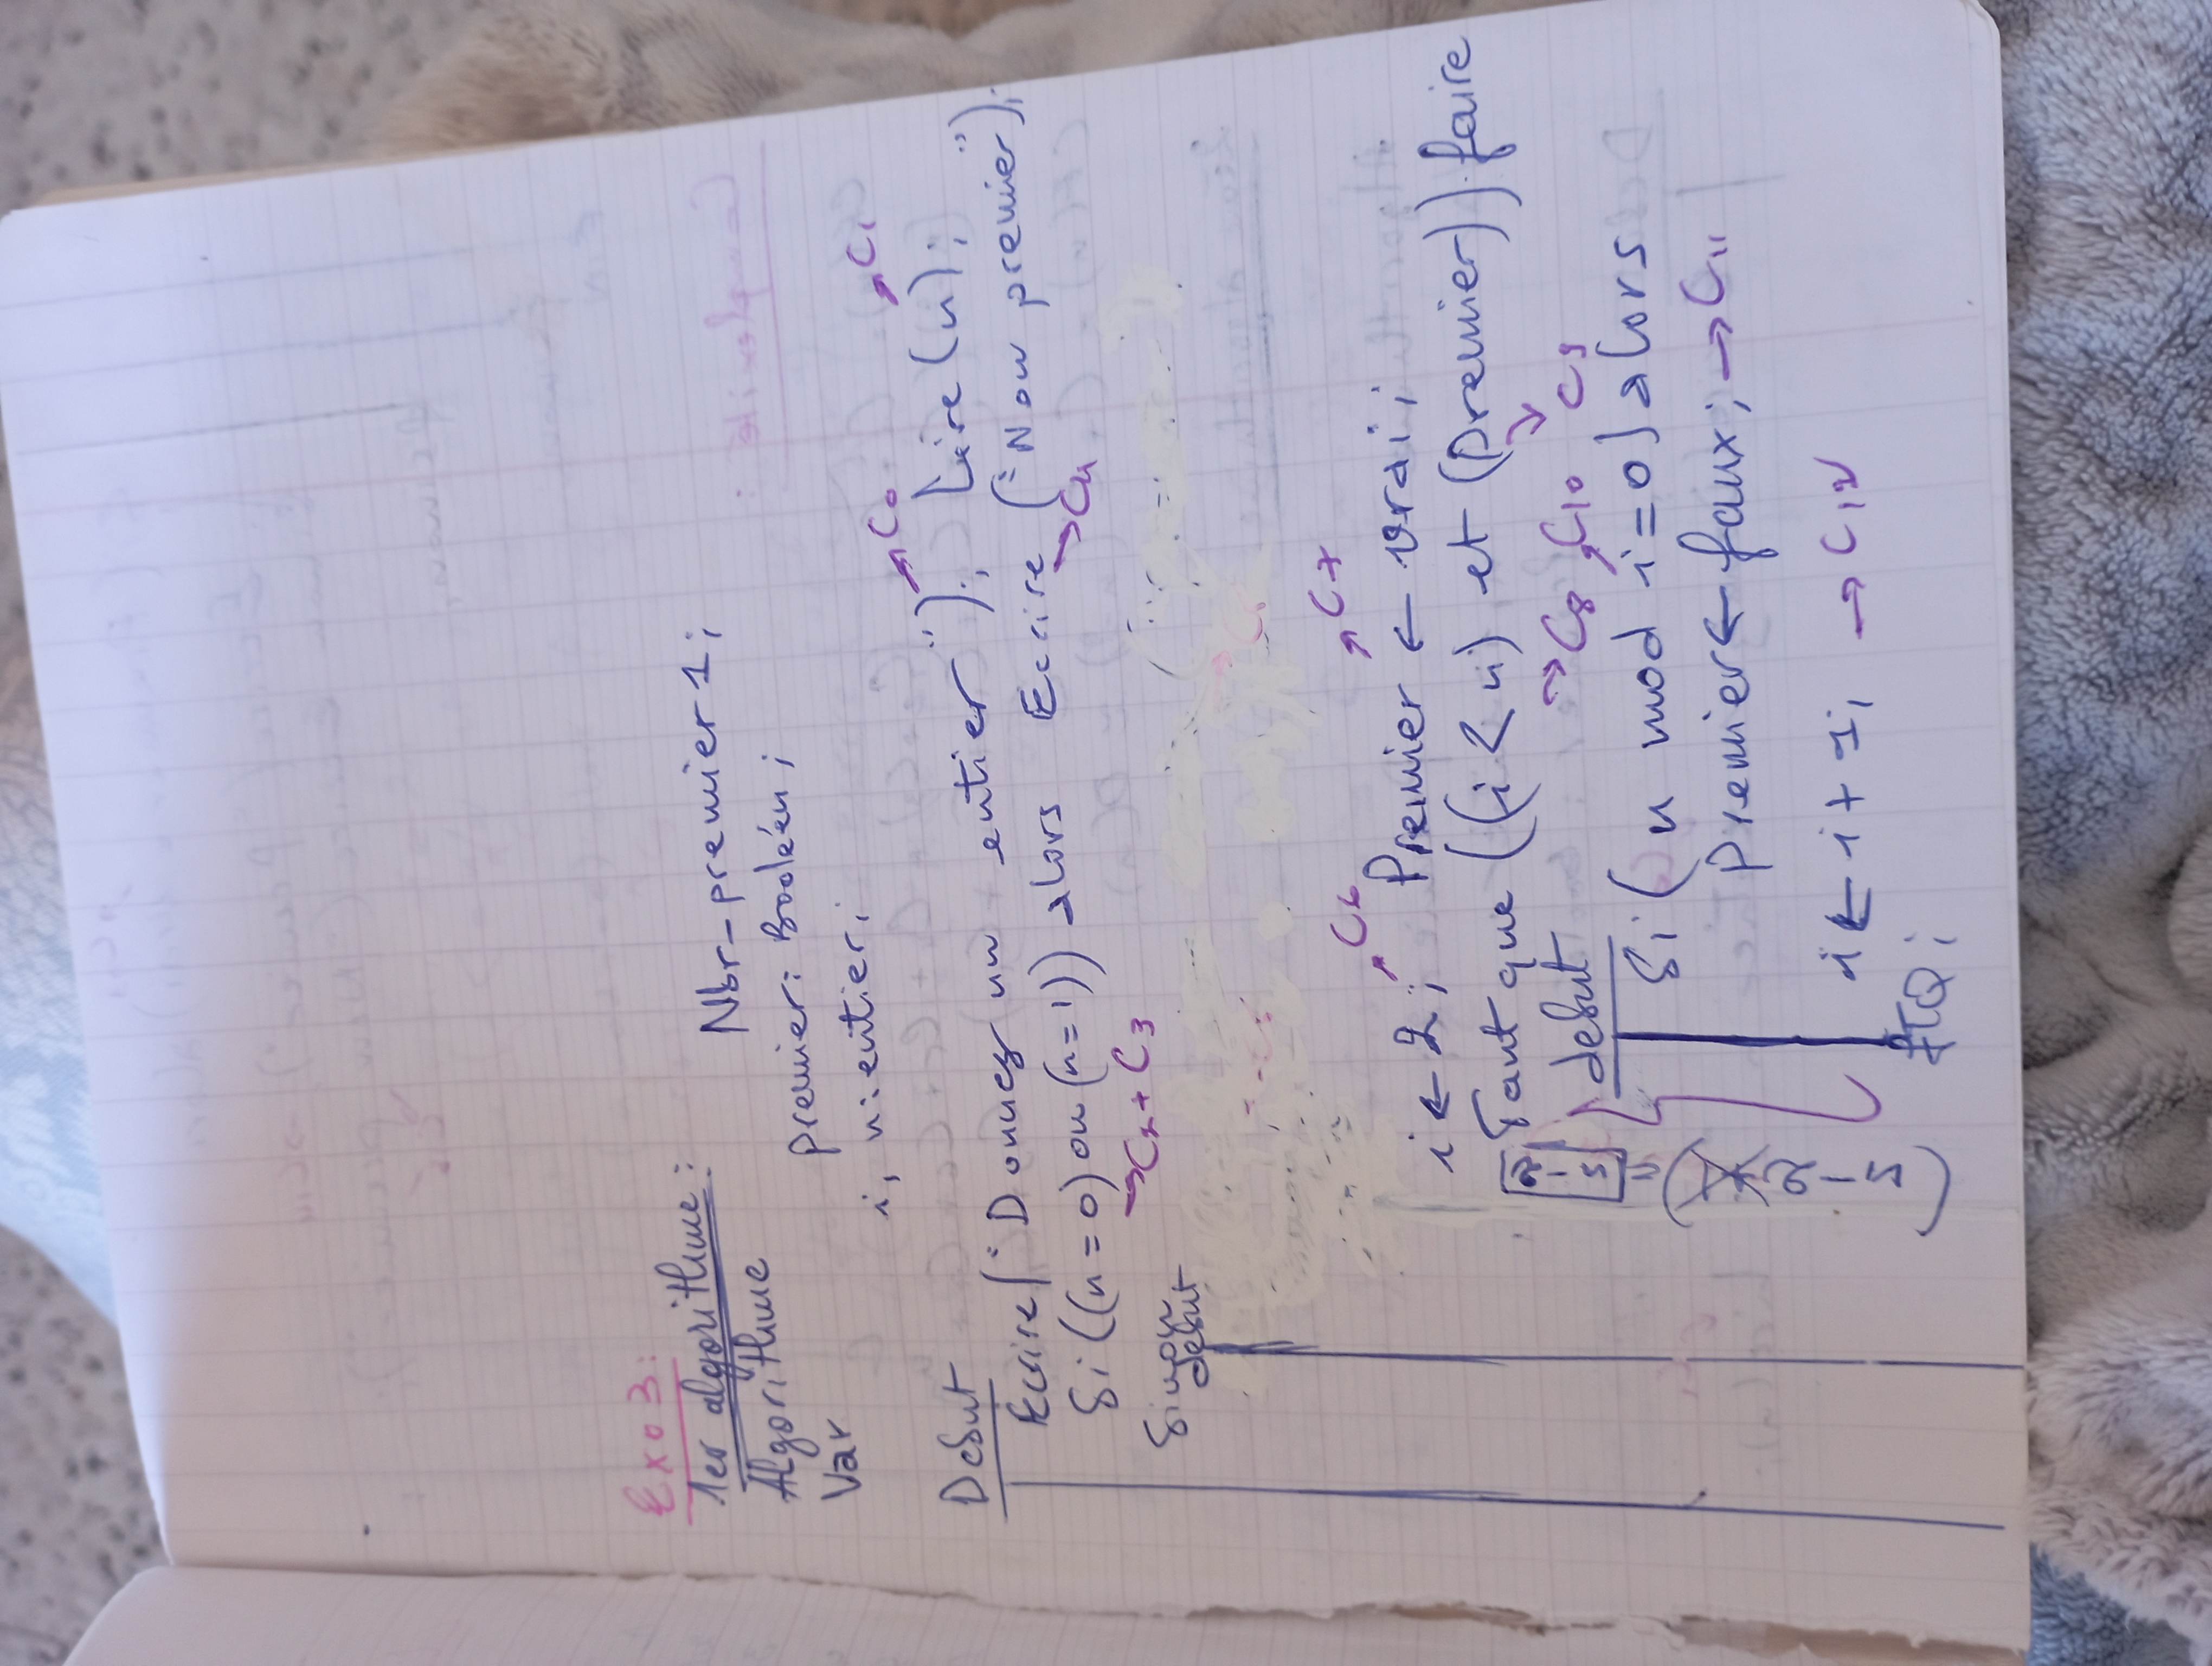 Exo 3:
1er algorithme :
Algorithme Nbr_premier 1;
Var premier: Booléen;
i, n: entier;
Debut
Ecrire("Donnez un entier"); → C0 Lire(n); → C1
Si((n=0) ou (n=1)) alors Ecrire ("Non premier");
→ C2 + C3 → C4
Sinon
debut
i ← 2; → C6 Premier ← vrai; → C7
Tant que ((i < n) et (Premier)) faire
→ C8 → C9
debut
Si (n mod i = 0) alors → C10
Premier ← faux; → C11
i ← i + 1; → C12
FTQ;
(n-2) = n-2